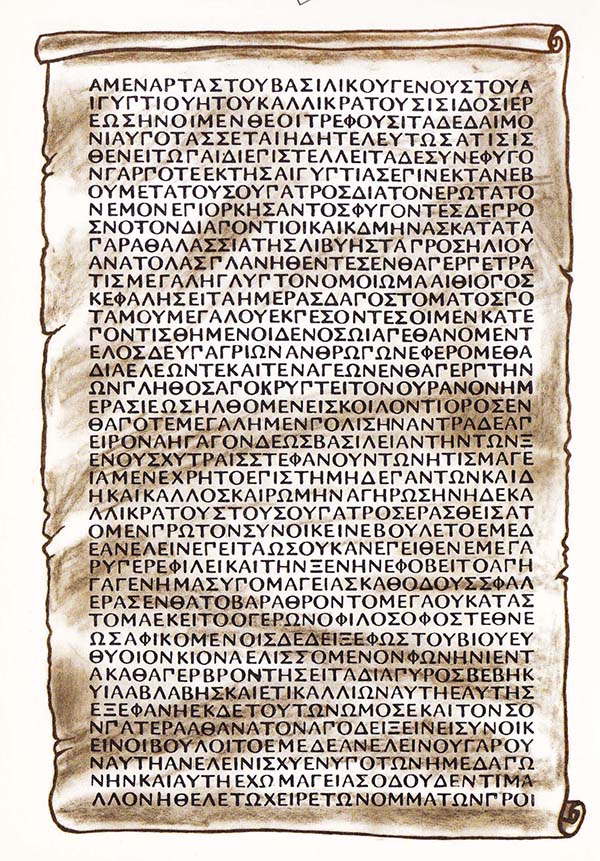 ΑΜΕΝΑΡΤΑΣΤΟΥΒΑΣΙΛΙΚΟΥΓΕΝΟΥΣΤΟΥΑ
ΙΓΥΓΤΙΟΥΗΤΟΥΚΑΛΛΙΚΡΑΤΟΥΣΙΣΙΔΟΣΙΕΡ
ΕΩΣΗΝΟΙΜΕΝΘΕΟΙΤΡΕΦΟΥΣΙΤΑΔΕΔΑΙΜΟ
ΝΙΑΥΓΟΤΑΣΣΕΤΑΙΗΔΗΤΕΛΕΥΤΩΣΑΤΙΣΙΣ
ΘΕΝΕΙΤΩΓΑΙΔΙΕΓΙΣΤΕΛΛΕΙΤΑΔΕΣΥΝΕΦΥΓΟ
ΝΓΑΡΓΟΤΕΕΚΤΗΣΑΙΓΥΓΤΙΑΣΕΓΙΝΕΚΤΑΝΕΒ
ΟΥΜΕΤΑΤΟΥΣΟΥΓΑΤΡΟΣΔΙΑΤΟΝΕΡΩΤΑΤΟ
ΝΕΜΟΝΕΓΙΟΡΚΗΣΑΝΤΟΣΦΥΓΟΝΤΕΣΔΕΓΡΟ
ΣΝΟΤΟΝΔΙΑΓΟΝΤΙΟΙΚΑΙΚΔΜΗΝΑΣΚΑΤΑΤΑ
ΓΑΡΑΘΑΛΑΣΣΙΑΤΗΣΛΙΒΥΗΣΤΑΓΡΟΣΗΛΙΟΥ
ΑΝΑΤΟΛΑΣΓΛΑΝΗΘΕΝΤΕΣΕΝΘΑΓΕΡΓΕΤΡΑ
ΤΙΣΜΕΓΑΛΗΓΛΥΓΤΟΝΟΜΟΙΩΜΑΑΙΘΙΟΓΟΣ
ΚΕΦΑΛΗΣΕΙΤΑΗΜΕΡΑΣΔΑΓΟΣΤΟΜΑΤΟΣΓΟ
ΤΑΜΟΥΜΕΓΑΛΟΥΕΚΓΕΣΟΝΤΕΣΟΙΜΕΝΚΑΤΕ
ΓΟΝΤΙΣΘΗΜΕΝΟΙΔΕΝΟΣΩΙΑΓΕΘΑΝΟΜΕΝΤ
ΕΛΟΣΔΕΥΓΑΓΡΙΩΝΑΝΘΡΩΓΩΝΕΦΕΡΟΜΕΘΑ
ΔΙΑΕΛΕΩΝΤΕΚΑΙΤΕΝΑΓΕΩΝΕΝΘΑΓΕΡΓΤΗΝ
ΩΝΓΛΗΘΟΣΑΓΟΚΡΥΓΤΕΙΤΟΝΟΥΡΑΝΟΝΗΜ
ΕΡΑΣΙΕΩΣΗΛΘΟΜΕΝΕΙΣΚΟΙΛΟΝΤΙΟΡΟΣΕΝ
ΘΑΓΟΤΕΜΕΓΑΛΗΜΕΝΓΟΛΙΣΗΝΑΝΤΡΑΔΕΑΓ
ΕΙΡΟΝΑΗΓΑΓΟΝΔΕΩΣΒΑΣΙΛΕΙΑΝΤΗΝΤΩΝΞ
ΕΝΟΥΣΧΥΤΡΑΙΣΣΤΕΦΑΝΟΥΝΤΩΝΗΤΙΣΜΑΓΕ
ΙΑΜΕΝΕΧΡΗΤΟΕΓΙΣΤΗΜΗΔΕΓΑΝΤΩΝΚΑΙΔ
ΗΚΑΙΚΑΛΛΟΣΚΑΙΡΩΜΗΝΑΓΗΡΩΣΗΝΗΔΕΚΑ
ΛΛΙΚΡΑΤΟΥΣΤΟΥΣΟΥΓΑΤΡΟΣΕΡΑΣΘΕΙΣΑΤ
ΟΜΕΝΓΡΩΤΟΝΣΥΝΟΙΚΕΙΝΕΒΟΥΛΕΤΟΕΜΕΔ
ΕΑΝΕΛΕΙΝΕΓΕΙΤΑΩΣΟΥΚΑΝΕΓΕΙΘΕΝΕΜΕΓΑ
ΡΥΓΕΡΕΦΙΛΕΙΚΑΙΤΗΝΞΕΝΗΝΕΦΟΒΕΙΤΟΑΓΗ
ΓΑΓΕΝΗΜΑΣΥΓΟΜΑΓΕΙΑΣΚΑΘΟΔΟΥΣΣΦΑΛ
ΕΡΑΣΕΝΘΑΤΟΒΑΡΑΘΡΟΝΤΟΜΕΓΑΟΥΚΑΤΑΣ
ΤΟΜΑΕΚΕΙΤΟΟΓΕΡΩΝΟΦΙΛΟΣΟΦΟΣΤΕΘΝΕ
ΩΣΑΦΙΚΟΜΕΝΟΙΣΔΕΔΕΙΞΕΦΩΣΤΟΥΒΙΟΥΕΥ
ΘΥΟΙΟΝΚΙΟΝΑΕΛΙΣΣΟΜΕΝΟΝΦΩΝΗΝΙΕΝΤ
ΑΚΑΘΑΓΕΡΒΡΟΝΤΗΣΕΙΤΑΔΙΑΓΥΡΟΣΒΕΒΗΚ
ΥΙΑΑΒΛΑΒΗΣΚΑΙΕΤΙΚΑΛΛΙΩΝΑΥΤΗΕΑΥΤΗΣ
ΕΞΕΦΑΝΗΕΚΔΕΤΟΥΤΩΝΩΜΟΣΕΚΑΙΤΟΝΣΟ
ΝΓΑΤΕΡΑΑΘΑΝΑΤΟΝΑΓΟΔΕΙΞΕΙΝΕΙΣΥΝΟΙΚ
ΕΙΝΟΙΒΟΥΛΟΙΤΟΕΜΕΔΕΑΝΕΛΕΙΝΟΥΓΑΡΟΥ
ΝΑΥΤΗΑΝΕΛΕΙΝΙΣΧΥΕΝΥΓΟΤΩΝΗΜΕΔΑΓΩ
ΝΗΝΚΑΙΑΥΤΗΕΧΩΜΑΓΕΙΑΣΟΔΟΥΔΕΝΤΙΜΑ
ΛΛΟΝΗΘΕΛΕΤΩΧΕΙΡΕΤΩΝΟΜΜΑΤΩΝΓΡΟΙ